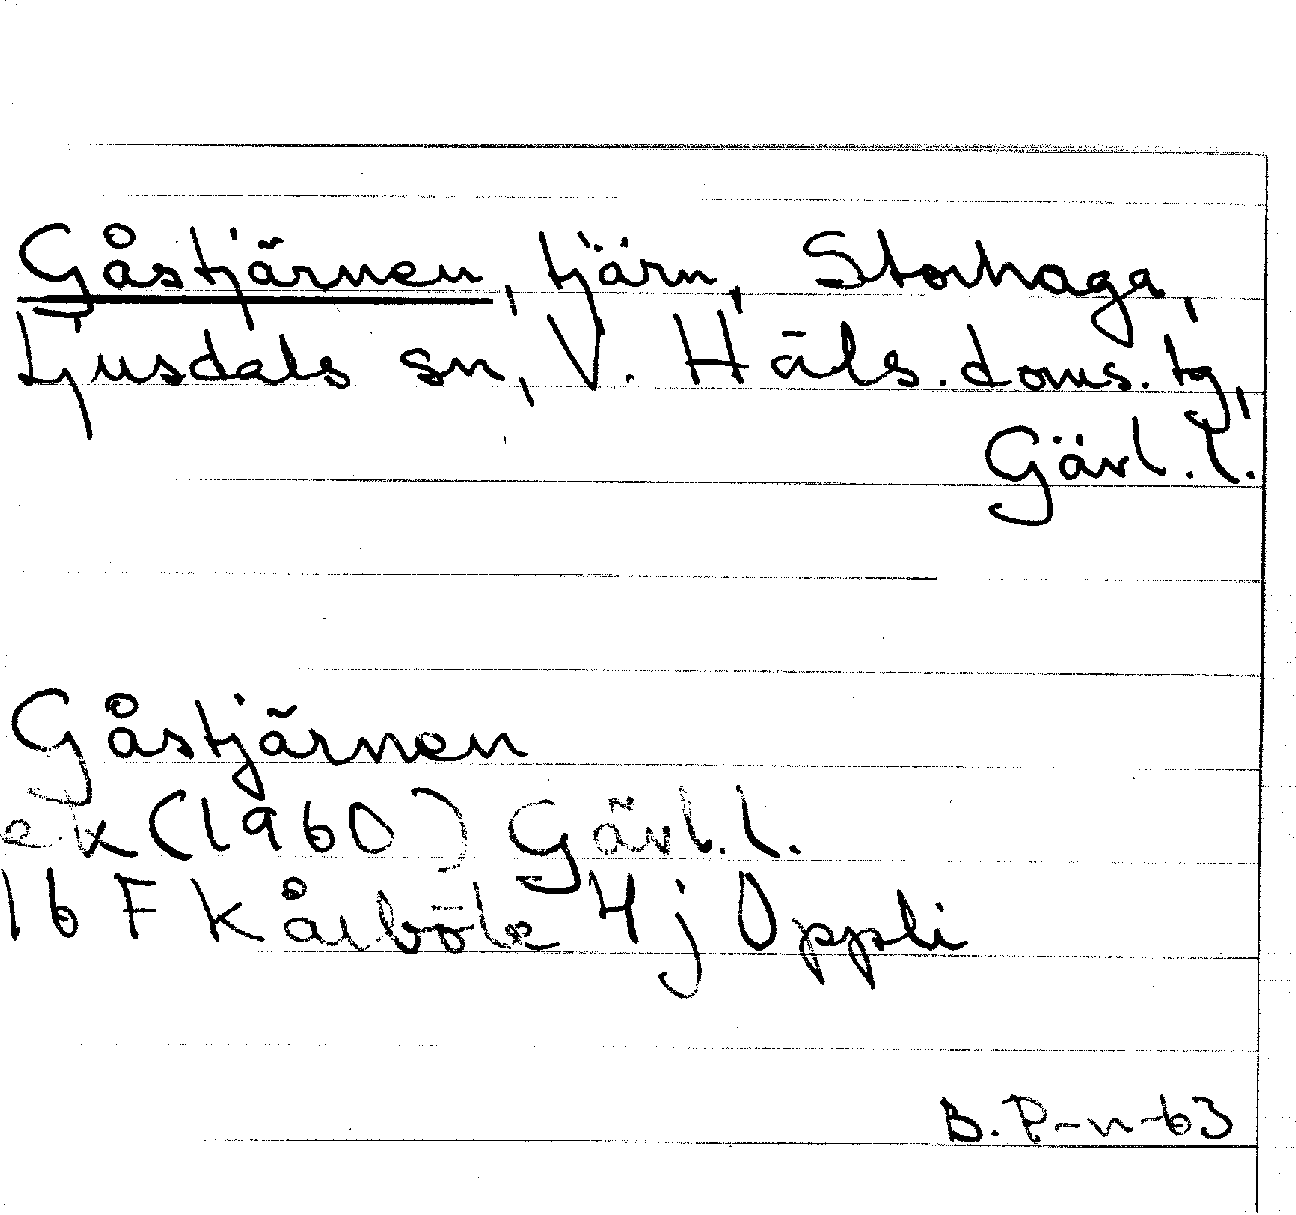 Gåstjärnen, tjärn, Storhaga,
Ljusdals sn, V. Häls. doms. tg,
Gävl. l.
Gåstjärnen
ek (1960) Gävl. l.
16 F Kårböle 4 j Oppli
B. P-n-63